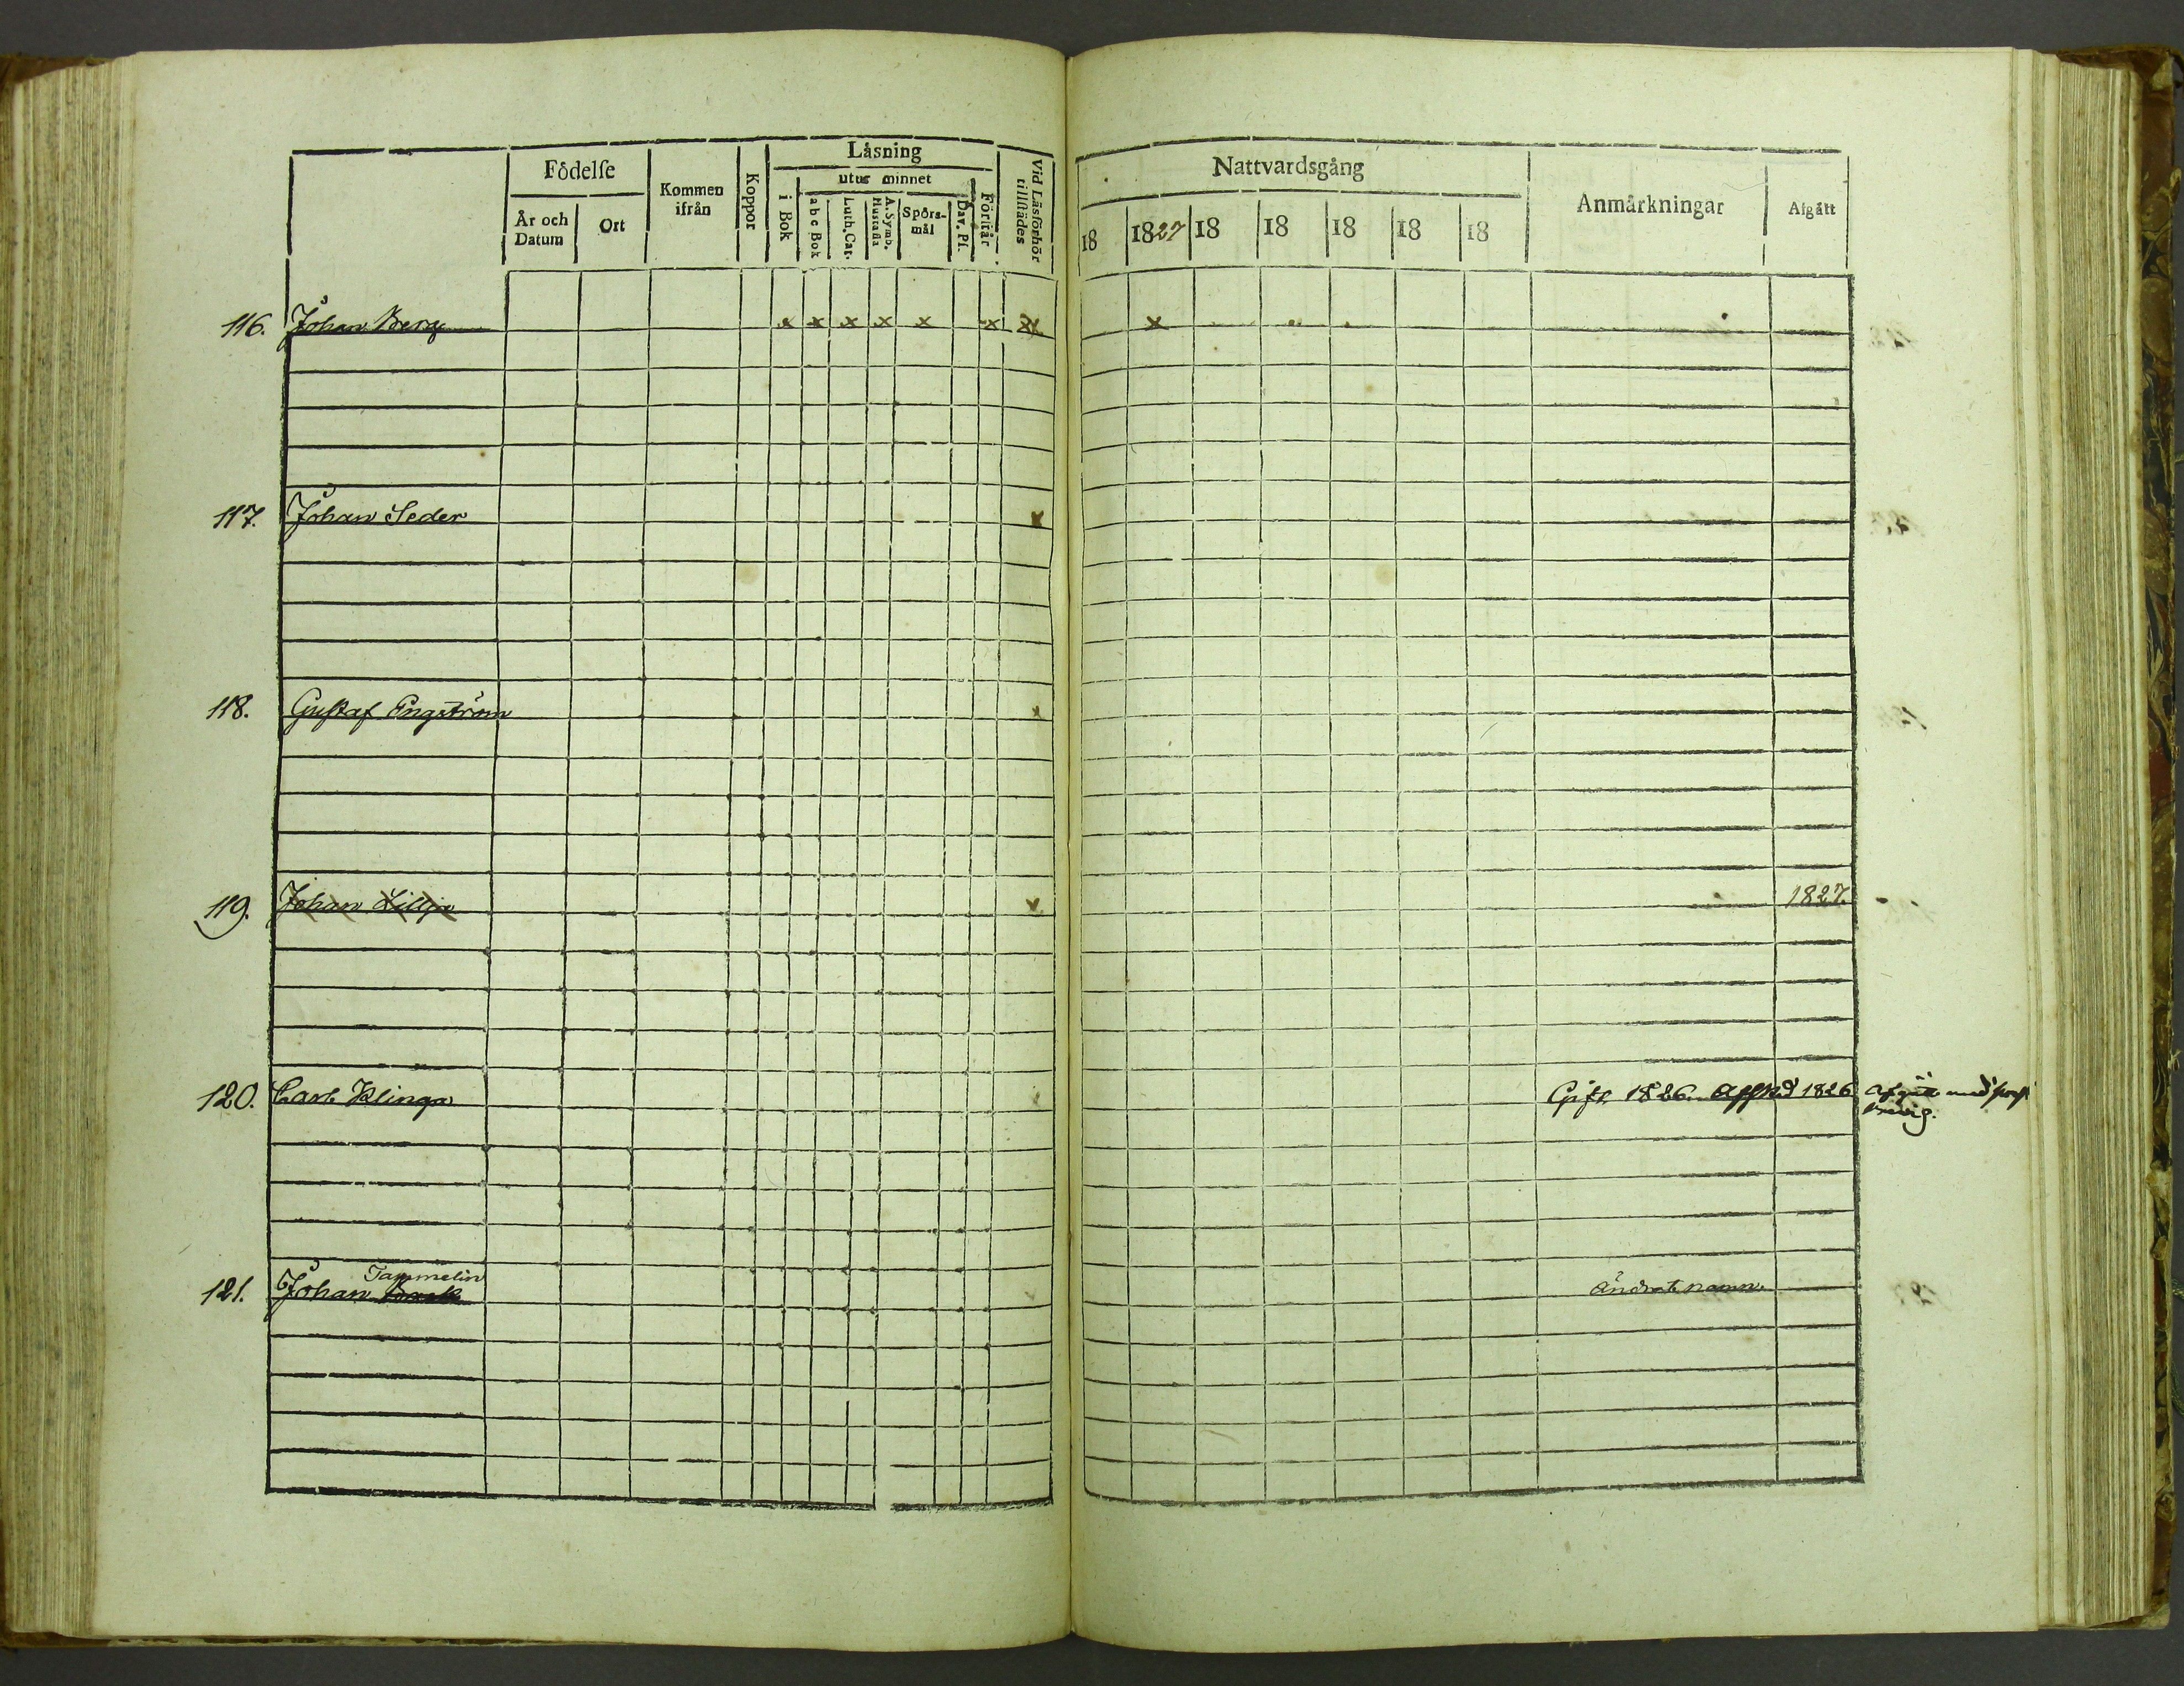 Födelse
Kommen ifrån
Koppor
Läsning
utur minnet
Vid Läsförhör tillstädes
År och Datum
Ort
i Bok
abc Bok
Luth. Cat.
A. Symb. Hustafla
Spörs-mål
Dav. Ps.
Förstår
Nattvardsgång
Anmärkningar
Afgått
18 1827 18 18 18 18 18
116. Johan Berg x x x x x x x x
117. Johan Seder x
118. Gustaf Engström x
119. Johan Lillja x 1827.
120. Carl Klinga Gift 1826. Afsked 1826 Afgått med
Tammelin
121. Johan ändrat namn.